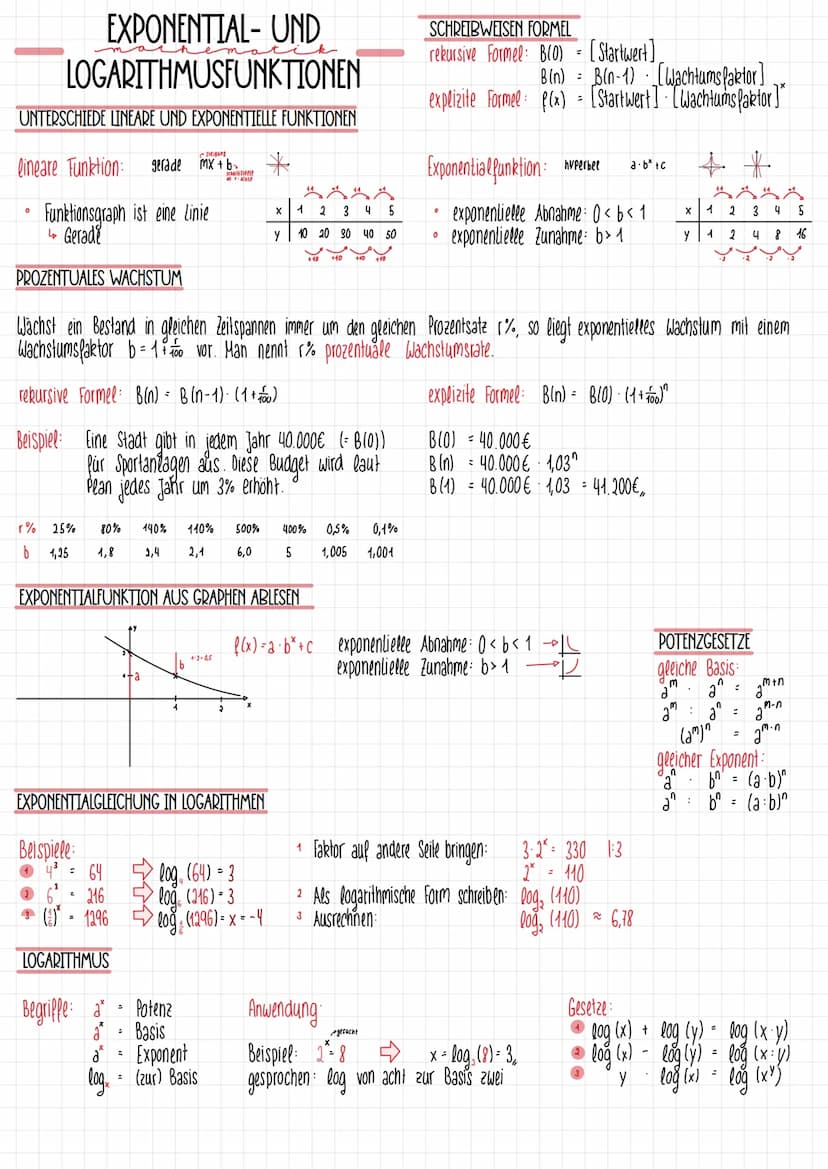 EXPONENTIAL- UND
mathematik
LOGARITHMUSFUNKTIONEN
SCHREIBWEISEN FORMEL
rekursive Formel: B(0) = [Startwert]
B(n) = B(n-1) · [Wachtumsfaktor]
explizite Formel: f(x) = [Startwert] · [Wachtumsfaktor]ˣ
UNTERSCHIEDE LINEARE UND EXPONENTIELLE FUNKTIONEN
lineare Funktion: gerade mx + b
Steigung
° Funktionsgraph ist eine Linie
↳ Gerade
+1 +1 +1 +1
x 1 2 3 4 5
y 10 20 30 40 50
+10 +10 +10 +10
Exponentialfunktion: hyperbel a·bˣ+c
° exponentielle Abnahme: 0 < b < 1
° exponentielle Zunahme: b > 1
+1 +1 +1 +1
x 1 2 3 4 5
y 1 2 4 8 16
·2 ·2 ·2 ·2
PROZENTUALES WACHSTUM
Wächst ein Bestand in gleichen Zeitspannen immer um den gleichen Prozentsatz r%, so liegt exponentielles Wachstum mit einem
Wachstumsfaktor b = 1 + r/100 vor. Man nennt r% prozentuale Wachstumsrate.
rekursive Formel: B(n) = B(n-1) · (1 + r/100)
explizite Formel: B(n) = B(0) · (1 + r/100)ⁿ
Beispiel: Eine Stadt gibt in jedem Jahr 40.000€ (= B(0))
für Sportanlagen aus. Diese Budget wird laut
Plan jedes Jahr um 3% erhöht.
B(0) = 40.000€
B(n) = 40.000€ · 1,03ⁿ
B(1) = 40.000€ · 1,03 = 41.200€
r% 25% 80% 140% 110% 500% 400% 0,5% 0,1%
b 1,25 1,8 2,4 2,1 6,0 5 1,005 1,001
EXPONENTIALFUNKTION AUS GRAPHEN ABLESEN
y
a
b
1 2 x
f(x) = a · bˣ + c
exponentielle Abnahme: 0 < b < 1 →
exponentielle Zunahme: b > 1 →
POTENZGESETZE
gleiche Basis:
aᵐ · aⁿ = aᵐ⁺ⁿ
aᵐ : aⁿ = aᵐ⁻ⁿ
(aᵐ)ⁿ = aᵐ·ⁿ
gleicher Exponent:
aⁿ · bⁿ = (a·b)ⁿ
aⁿ : bⁿ = (a:b)ⁿ
EXPONENTIALGLEICHUNG IN LOGARITHMEN
Beispiele:
1 4³ = 64 ⇨ log₄ (64) = 3
2 6³ = 216 ⇨ log₆ (216) = 3
3 (1/6)ˣ = 1296 ⇨ log 1/6 (1296) = x = -4
1 Faktor auf andere Seite bringen: 3·2ˣ = 330 |:3
2ˣ = 110
2 Als logarithmische Form schreiben: log₂ (110)
3 Ausrechnen: log₂ (110) ≈ 6,78
LOGARITHMUS
Begriffe: aˣ = Potenz
aˣ = Basis
aˣ = Exponent
logₓ = (zur) Basis
Anwendung:
gesucht
Beispiel: 2ˣ = 8 ⇨ x = log₂ (8) = 3
gesprochen: log von acht zur Basis zwei
Gesetze:
1 log (x) + log (y) = log (x·y)
2 log (x) - log (y) = log (x:y)
3 y · log (x) = log (xʸ)